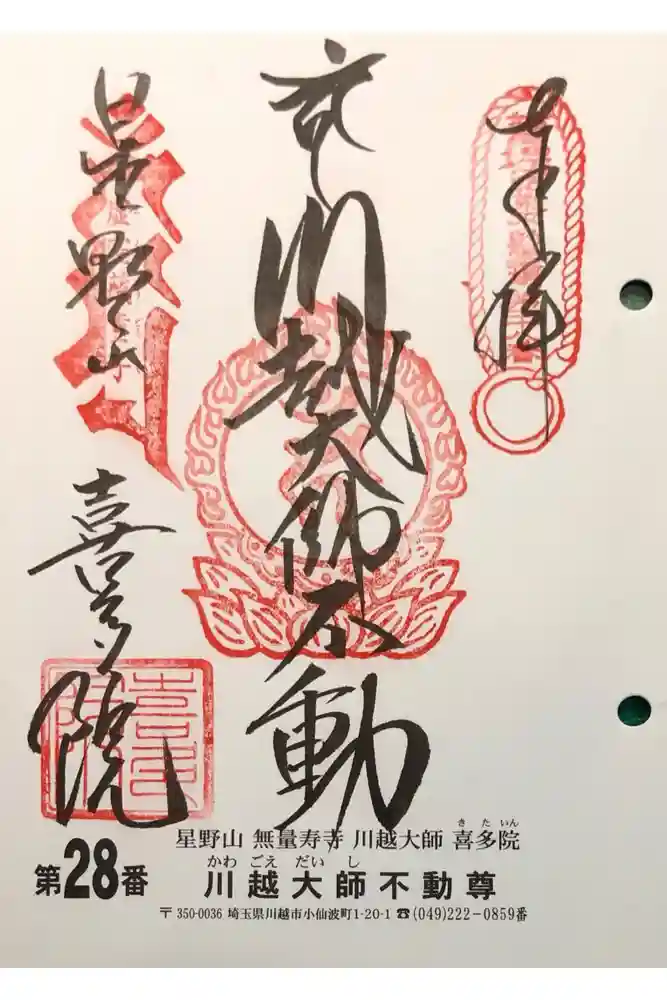 奉拝
川越大師不動
星野山
喜多院
星野山 無量寿寺 川越大師 喜多院
きたいん
第28番
かわごえだいし
川越大師不動尊
〒350-0036 埼玉県川越市小仙波町1-20-1 ☎(049)222-0859番